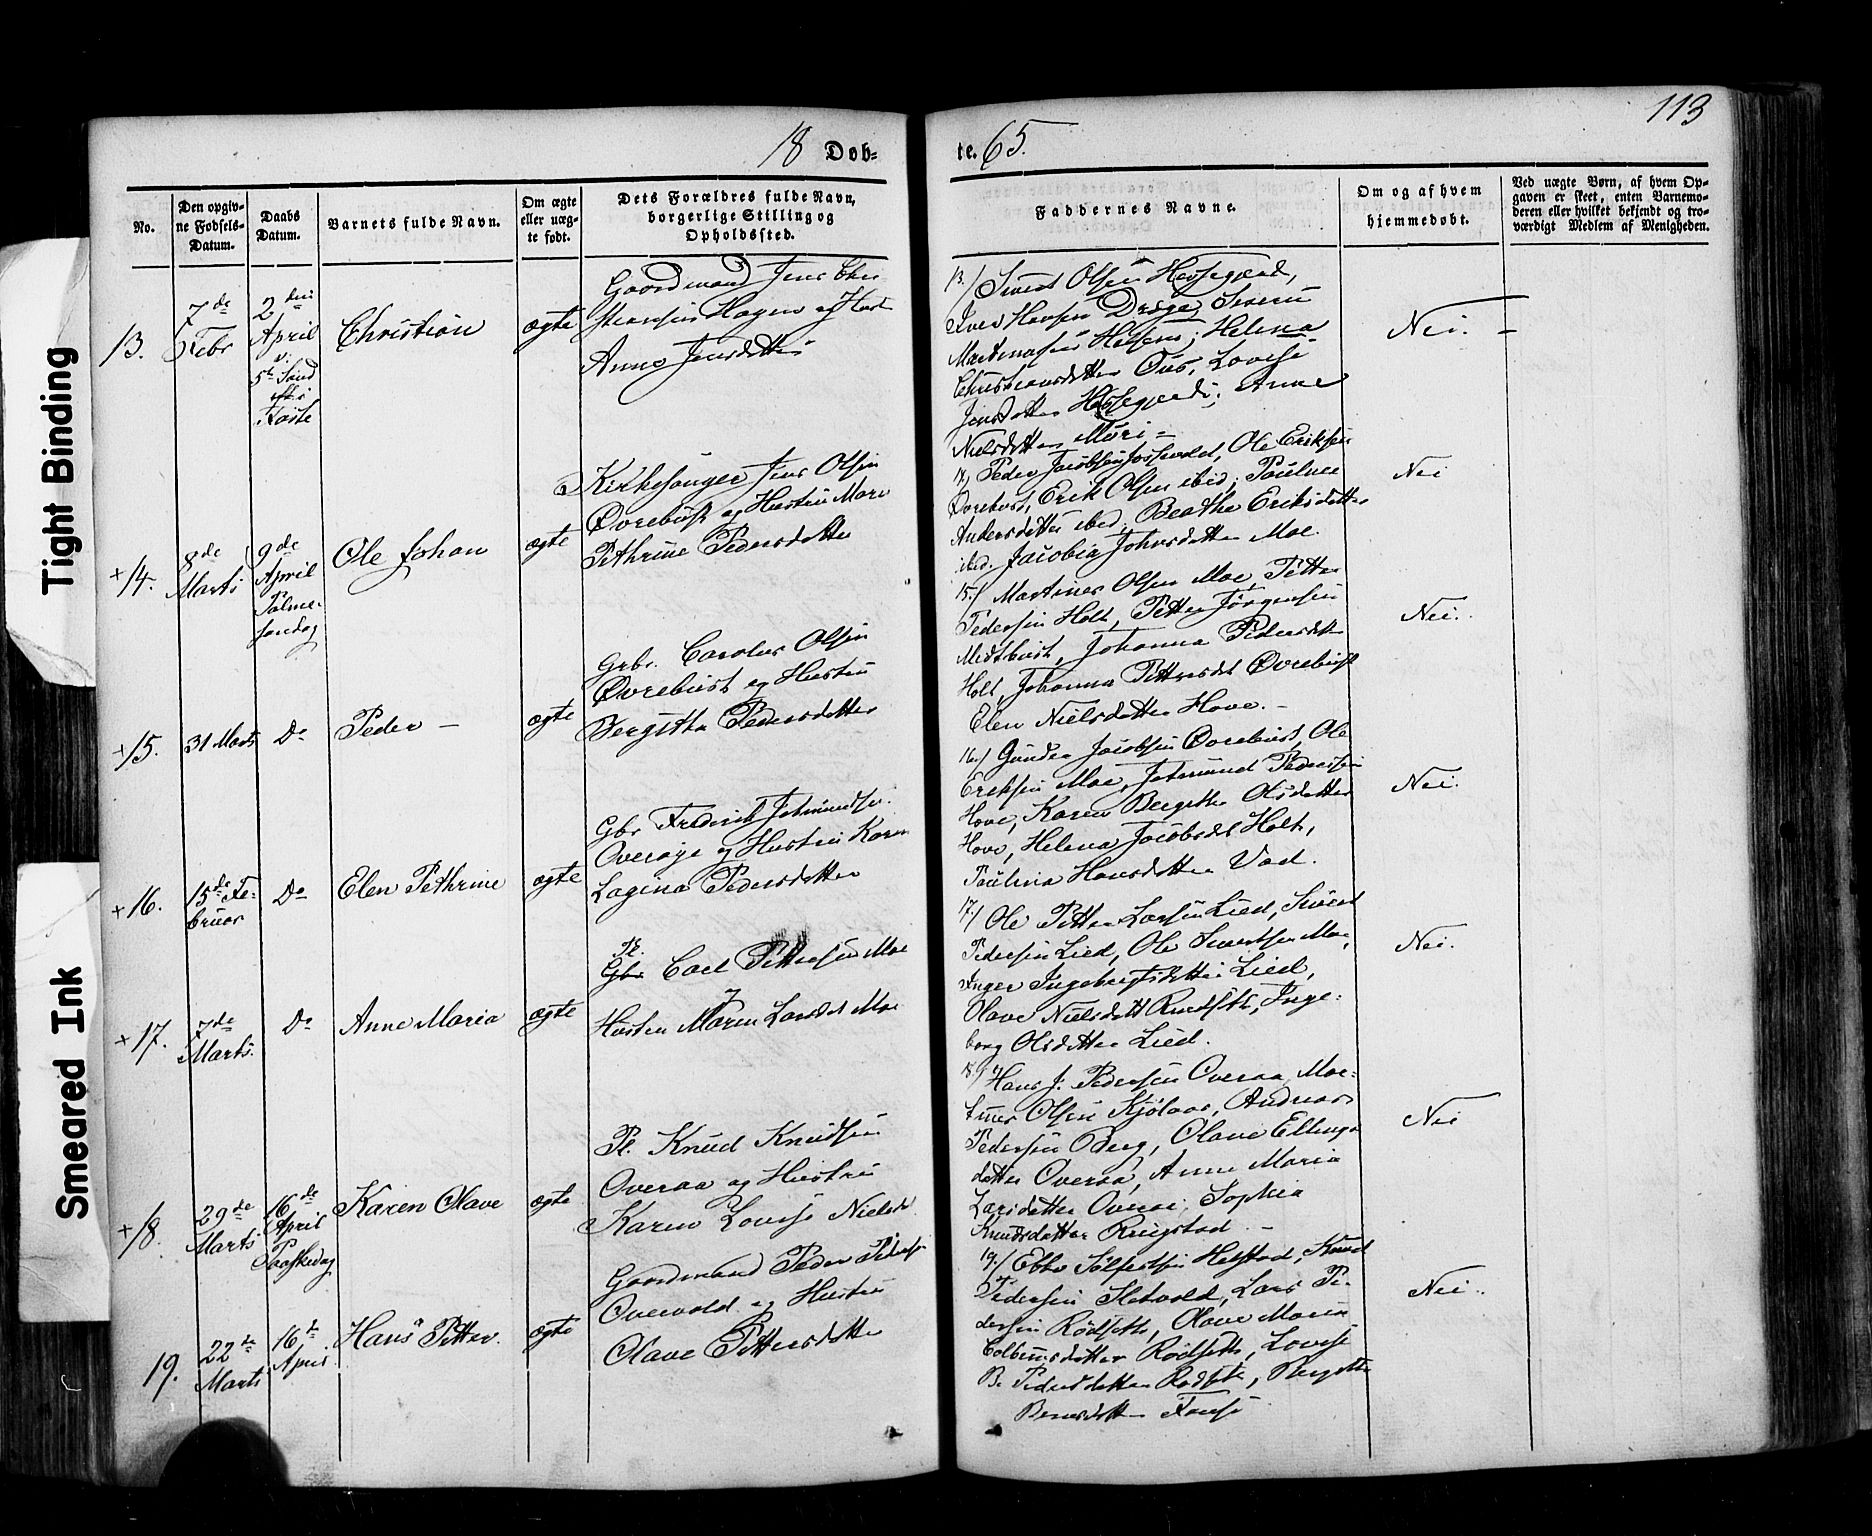 113
18 Dob=
te. 65.
No.
Den opgiv=
ne Fødsels=
Datum.
Daabs
Datum.
Barnets fulde Navn.
Om ægte
eller uæg=
te født.
Dets Forældres fulde Navn,
borgerlige Stilling og
Opholdssted.
Faddernes Navne.
Om og af hvem
hjemmedøbt.
Ved uægte Børn, af hvem Op=
gaven er skeet, enten Barnemo=
deren eller hvilket bekjendt og tro=
værdigt Medlem af Menigheden.
13.
7de
Febr
2den
April
v.
5te Sønd
i
Faste
Christian
ægte
Gaardmand Jens Chri
stiansen Hagen og Hust
Anne Jensdatter
13/ Sivert Olsen
Iver Hansen Drage, Siverin
Martinusen Helsem; Helena
Christiansdatter Ous, Lovise
Jensdatter Anne
Nielsdatter Myri –
Nei. –
+14.
8de
Marts
9de
April
Palme=
søndag
Ole Johan
ægte
Kirkesanger Jens Olsen
Øvrebust og Hustru Mare
Pethrine Pedersdatter
14/ Peder Jacobsen Ole Eriksen
Øvrebust, Erik Olsen ibid; Paulnee
Andersdatter ibid; Beathe Eriksdatter
ibid. Jacobia Johnsdatter Moe.
Nei
+15.
31 Marts
Do
Peder –
ægte
Gbr. Carolus Olsen
Øvrebust og Hustru
Bergitha Pedersdatter
15/ Martinus Olsen Moe, Petter
Pedersen Holt, Petter Jørgensen
Midtbust, Johanna Pedersdt
Holt, Johanna Pettersdt Øvrebust
Elen Nielsdatter Hove. –
Nei.
+16.
15de Fe=
bruar
Do
Elen Pethrine
ægte
Gbr Frederik Jetmundsen
Overøye og Hustru Karen
Lagina Pedersdatter
16./ Gunder Jacobsen Øvrebust, Ole
Eriksen Moe, Jetmund Pedersen
Hove, Karen Bergitha Olsdatter
Hove, Helena Jacobsdt Holt,
Paulina Hansdatter Vad.
Nei.
+17.
7de
Marts.
Do
Anne Maria
ægte
Pl.
Gbr Carl Pettersen Moe
Hustru Maren Larsdt Moe
17/ Ole Petter Larsen Lied, Sivert
Pedersen Lied, Ole Sivertsen Moe,
Inger Ingebrigtsdatter Lied,
Olave Nielsdatt Rindseth, Inge=
borg Olsdatter Lied.
Nei.
+18.
29de
Marts
16de
April
Paaskedag
Karen Olave
ægte
Pl. Knud Knudsen
Overaa og Hustru
Karen Lovise Nielsd.
18/ Hans J. Pedersen Overaa, Mar=
tinus Olsen Kjølaas, Andreas
Pedersen Berg, Olave Ellings
datter Overaa, Anne Maria
Larsdatter Overaa; Sophia
Knudsdatter Ringstad. –
Nei
19.
22de
Marts
16de
April
Hans Petter.
ægte
Gaardmand Peder Peders
Overvold og Hustru
Olave Pettersdatter
19/ Ebbe Helstad, Knud
Pedersen Sletvold, Lars Pe=
dersen Rødseth, Olave Maria
Colbensdatter Rødseth, Lovise
B. Pedersdatter Rødseth, Bergitte
Berntsdatter
Nei.
Tight Binding
Smeared Ink